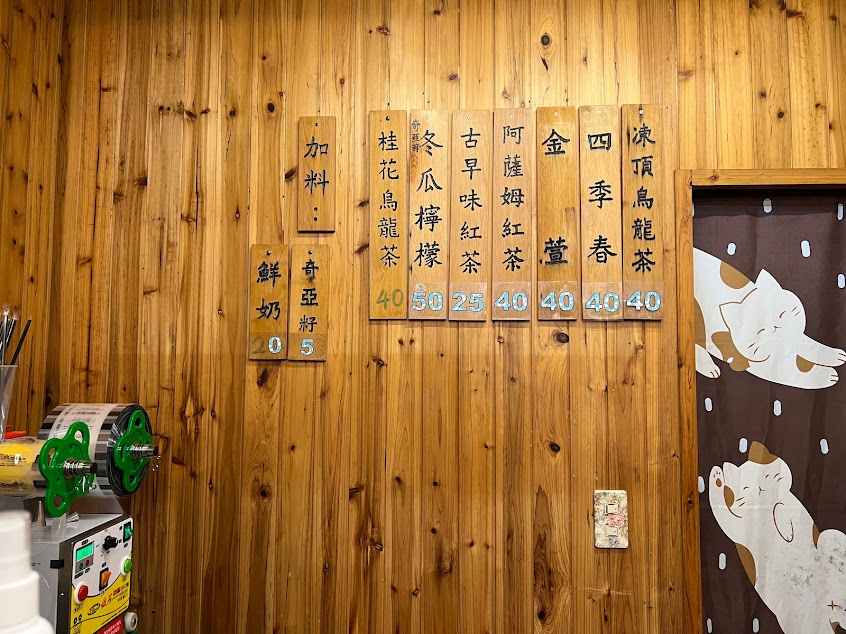 凍頂烏龍茶 40
四季春 40
金萱 40
阿薩姆紅茶 40
古早味紅茶 25
奇亞籽
冬瓜檸檬 50
桂花烏龍茶 40
加料：
奇亞籽 5
鮮奶 20